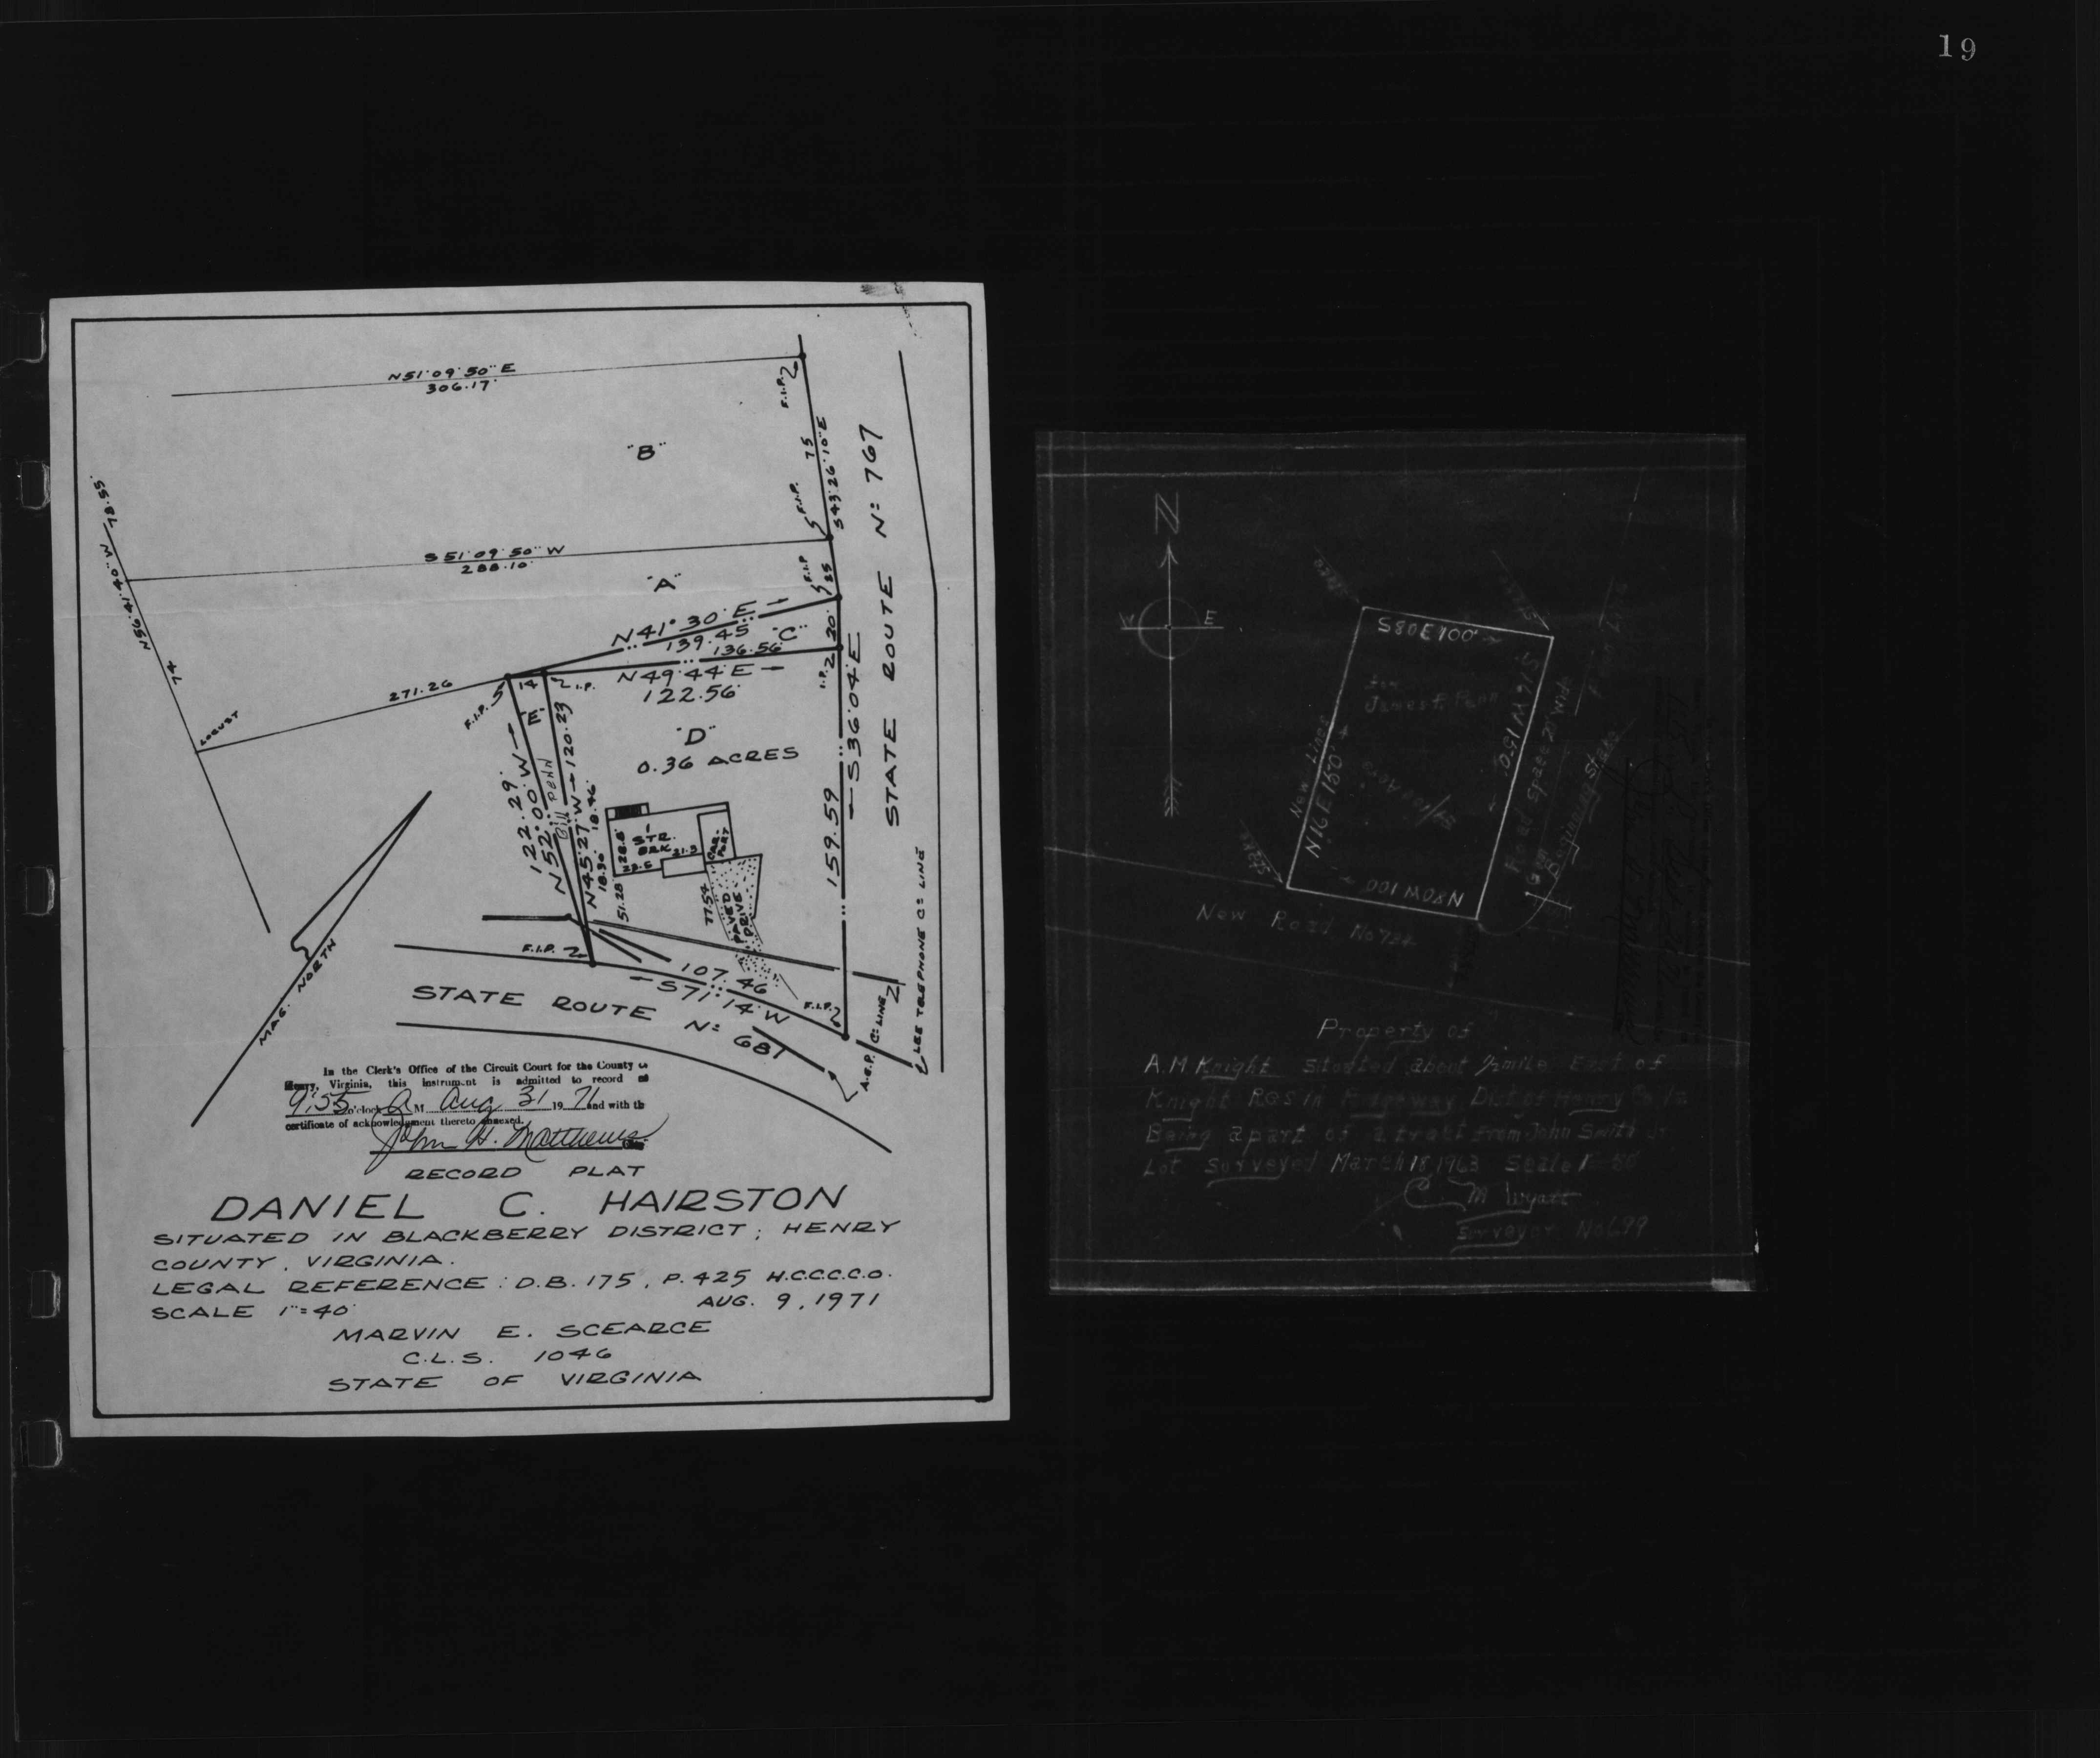 19
N51°09'50"E
306.17'
"B"
F.I.P.
75
S43°26'10"E
F.I.P.
STATE ROUTE No 767
78.55'
N56°41'40"W
74
S51°09'50"W
288.10'
"A"
F.I.P.
25
N41°30'E
139.45
"C"
20'
136.56'
N49°44'E
122.56'
I.P.
S36°04'E
271.26
LOCUST
F.I.P.
14
I.P.
"E"
"D"
0.36 ACRES
122.29'
N52°00'W
Bill PENN
N45°27'W
120.23
18.46
18.30
1 STR. BRK.
28.8
21.3
CAR-PORT
51.28
77.54
PAVED DRIVE
159.59
F.I.P.
107.46
S71°14'W
F.I.P.
STATE ROUTE No 681
A.E.P. C= LINE
LEE TELEPHONE C= LINE
MAG. NORTH
In the Clerk's Office of the Circuit Court for the County of
Henry, Virginia, this instrument is admitted to record at
9:55 o'clock A M Aug 31 1971 and with the
certificate of acknowledgment thereto annexed.
John H. Matthews
RECORD PLAT
DANIEL C. HAIRSTON
SITUATED IN BLACKBERRY DISTRICT; HENRY
COUNTY, VIRGINIA.
LEGAL REFERENCE: D.B. 175, P. 425 H.C.C.C.C.O.
SCALE 1"=40' AUG. 9, 1971
MARVIN E. SCEARCE
C.L.S. 1046
STATE OF VIRGINIA
N
W E
S80E100'
for
James P. Penn
S16W150'
New Lines
N16E150'
N80W100
Road Space 20' wide
Beginning Stake
New Road No
Property of
A.M Knight Situated about 1/2 mile East of
Knight Res in Ridgeway Dist. of Henry Co Va
Being apart of a tract from John Smith Jr
Lot Surveyed March 18, 1963 Scale
C. M Wyatt
Surveyor No 699